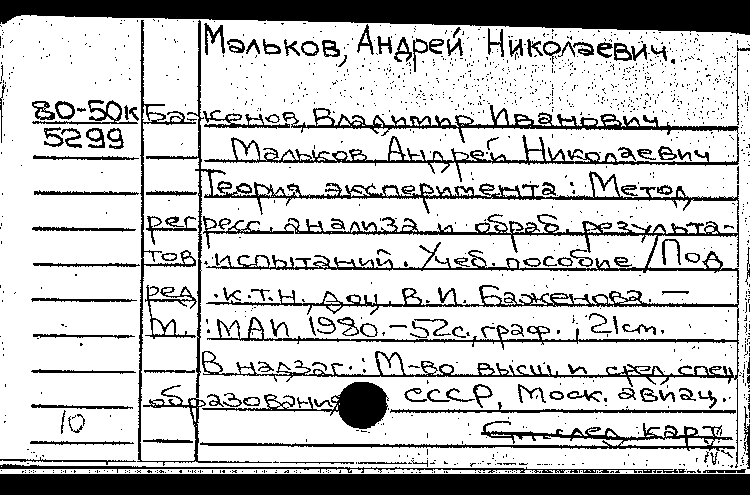 Мальков, Андрей Николаевич.
80-50к Баженов, Владимир Иванович,
5299 Мальков, Андрей Николаевич
Теория эксперимента: Метод
регресс. анализа и обраб. результа-
тов испытаний. Учеб. пособие / Под
ред. к.т.н., доц. В.И. Баженова. —
М. : МАИ, 1980. - 52с., граф. ; 21см.
В надзаг.: М-во высш. и сред. спец.
образования СССР, Моск. авиац.
10 См. след. карт